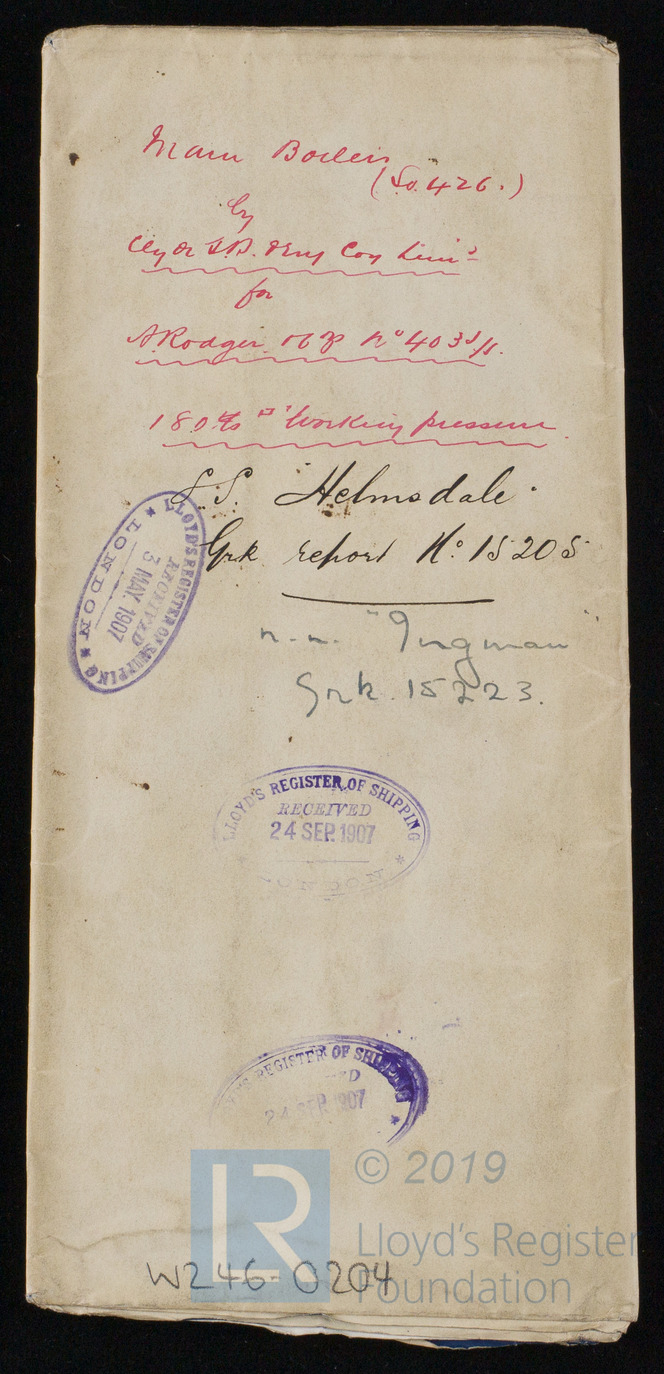 Main Boilers
(No. 426.)
by
Clyde S.B. & Eng Coy Lim^d
for
A Rodger & Co N° 403 S/S.
180 lbs □" Working pressure
S.S. Helmsdale
Grk report N° 15205
LLOYD'S REGISTER OF SHIPPING
RECEIVED
3 MAY. 1907
LONDON
n.n. "Ingman"
Grk. 15223.
LLOYD'S REGISTER OF SHIPPING
RECEIVED
24 SEP. 1907
LONDON
REGISTER OF SHIPPING
24 SEP. 1907
LR
© 2019
Lloyd's Register
Foundation
W246-0204